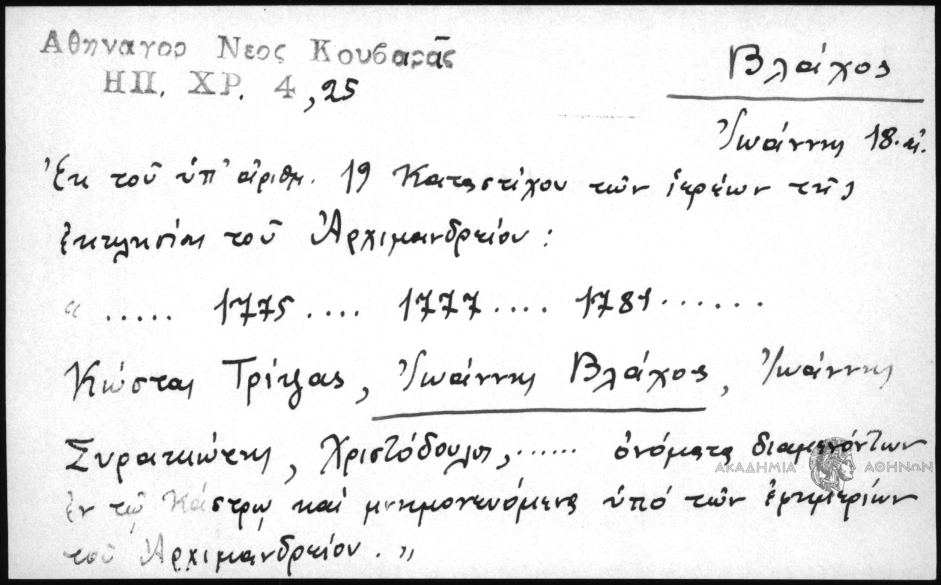 Αθηναγορ Νεος Κουβαρᾶς
ΗΠ. ΧΡ. 4, 25
Βλάχος
Ἰωάννης 18. αἰ.
Ἐκ τοῦ ὑπ' ἀριθμ. 19 Καταστίχου τῶν ἱερέων τῆς
ἐκκλησίας τοῦ Ἀρχιμανδρείου :
“ ..... 1775 .... 1777 .... 1781 ......
Κώστας Τρίτζας, Ἰωάννης Βλάχος, Ἰωάννης
Συρακιώτης, Χριστόδουλος, ...... ὀνόματα διαμενόντων
ἐν τῷ Κάστρῳ καί μνημονευόμενα ὑπό τῶν ἐφημερίων
τοῦ Ἀρχιμανδρείου. ”
ΑΚΑΔΗΜΙΑ ΑΘΗΝΩΝ